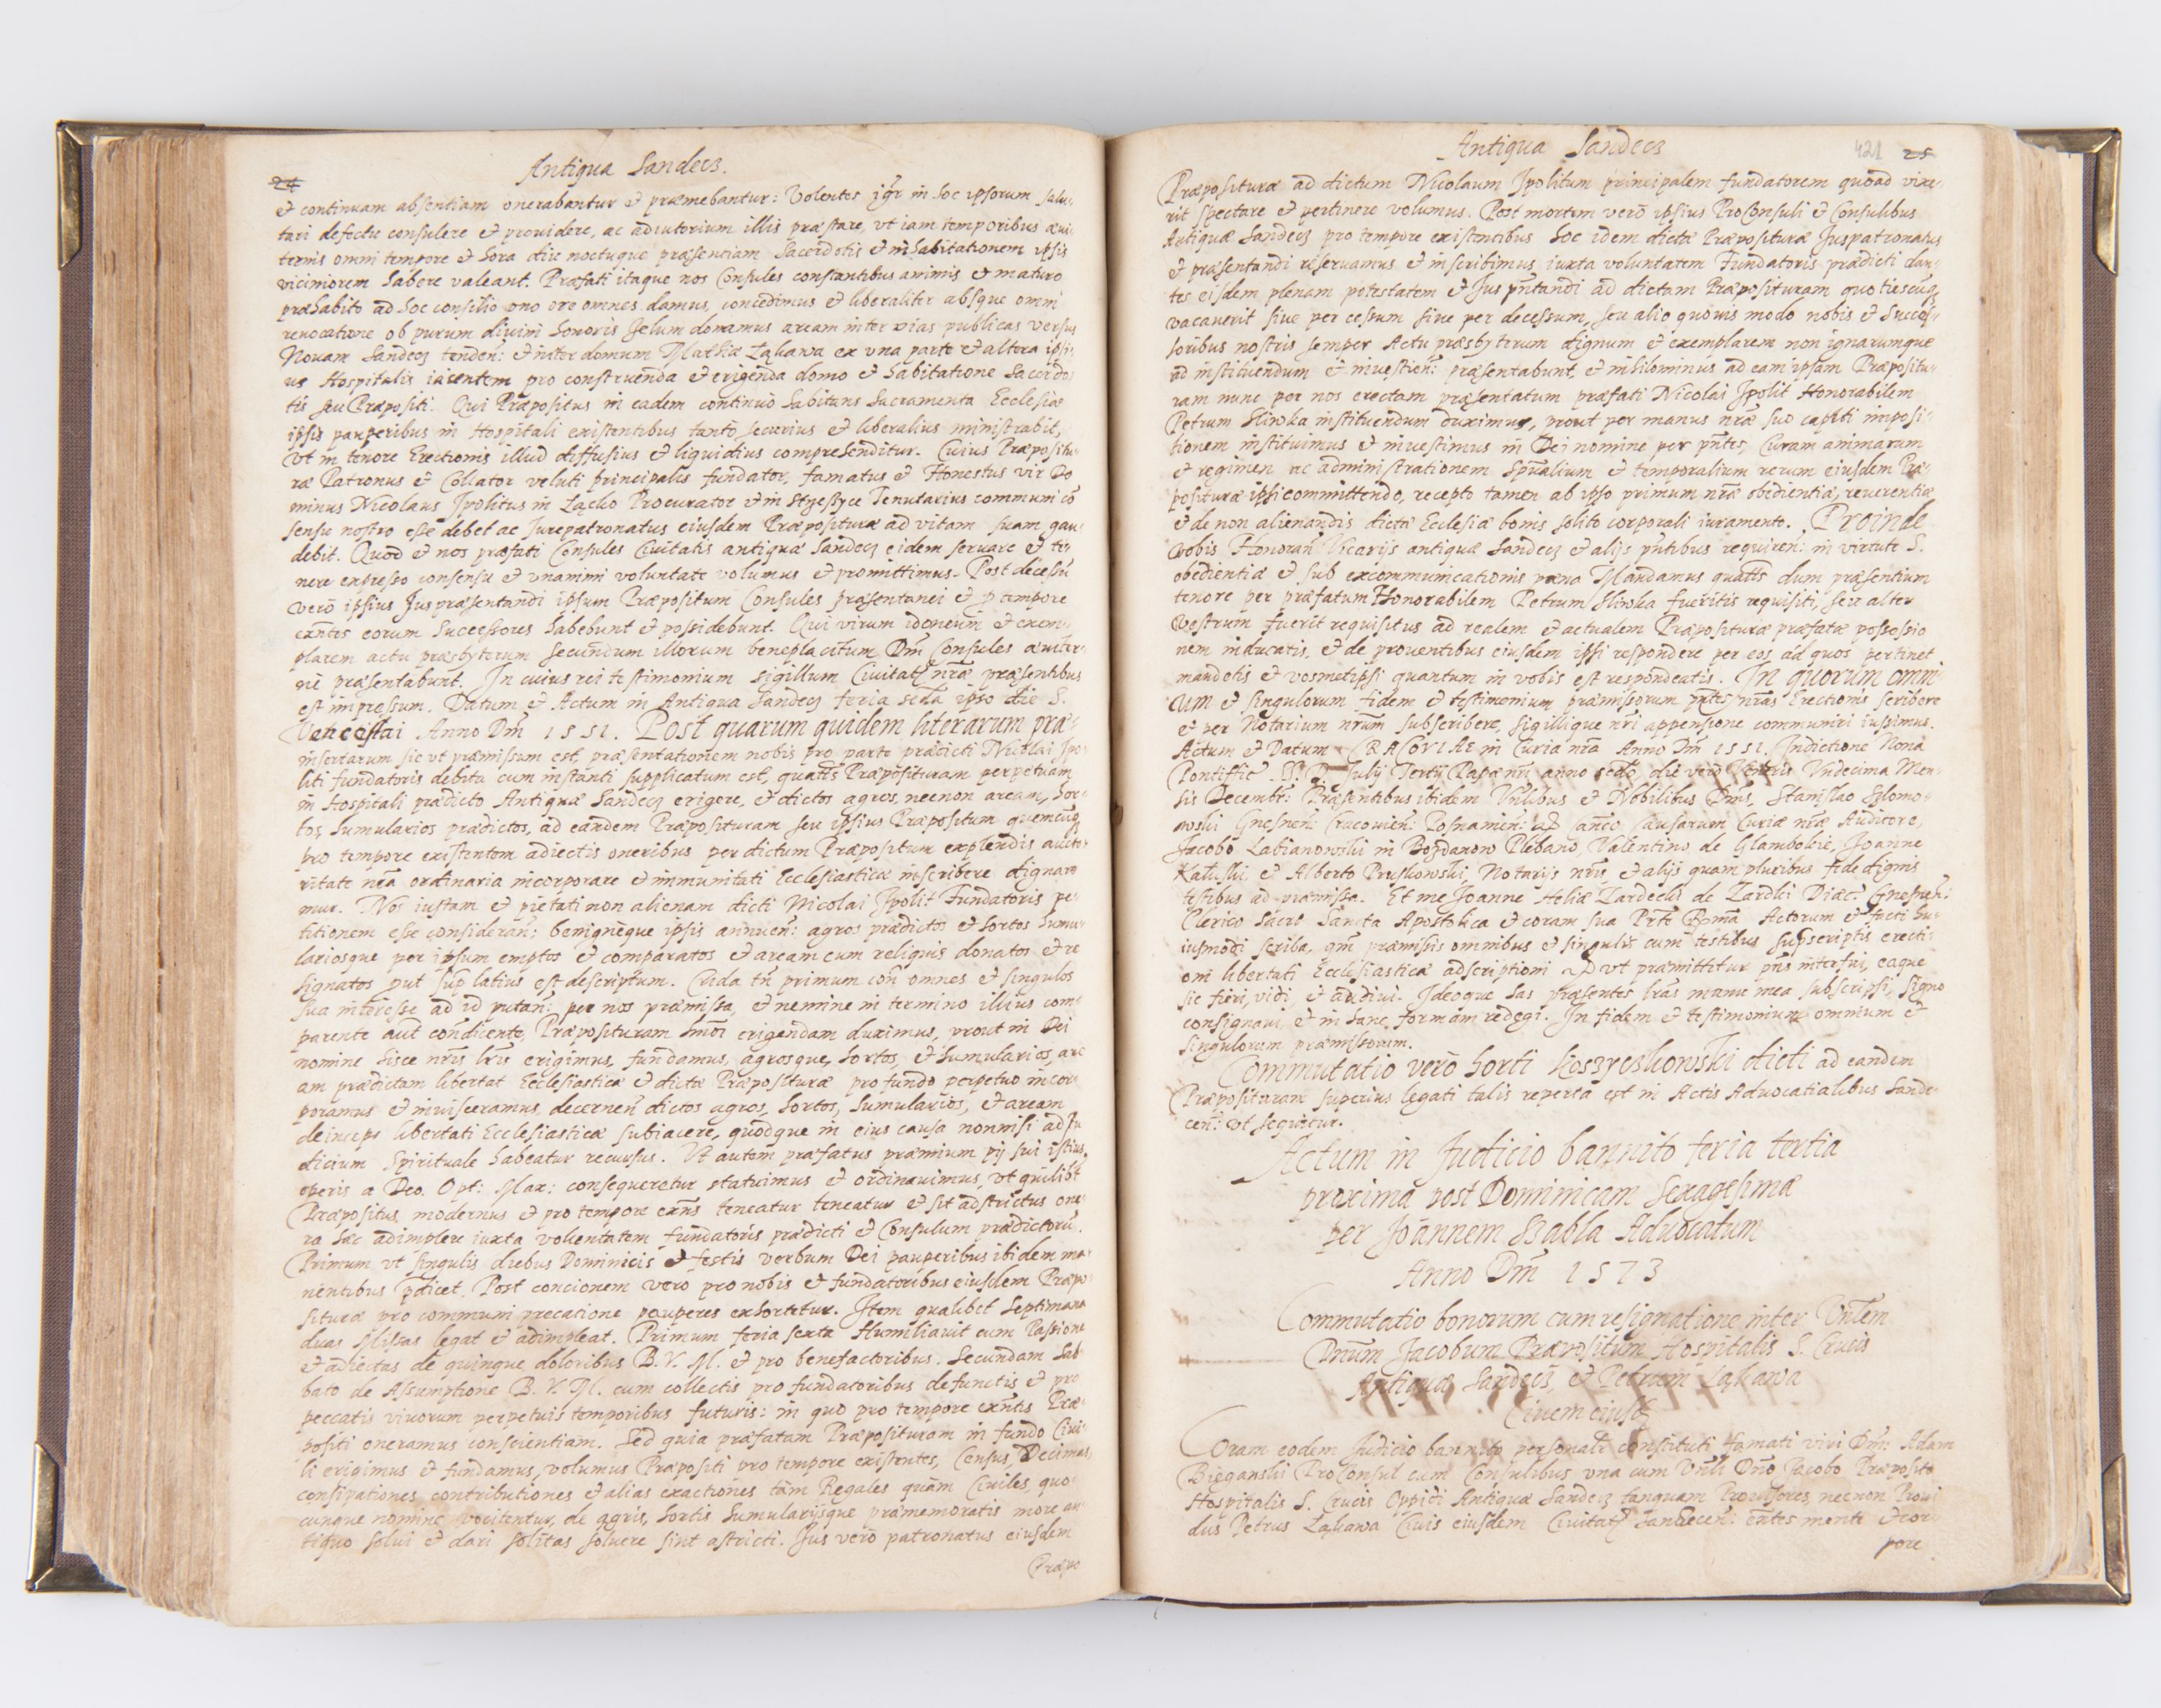 24
Antiqua Sandecz.
et continuam absentiam onerabantur et præmebantur: Volentes igr in hoc ipsorum salu-
tari defectu consulere et prouidere, ac adiutorium illis præstare, vt iam temporibus æui-
ternis omni tempore et hora diu noctuque præsentiam Sacerdotis et inhabitationem ipsis
viciniorem habere valeant. Præfati itaque nos Consules constantibus animis et maturo
præhabito ad hoc consilio vno ore omnes damus, concedimus et liberaliter absque omni
reuocatione ob purum diuini honoris zelum donamus aream inter vias publicas versus
Nouam Sandecz tenden: et inter domum Mathiæ Ląkawa ex vna parte et altera ipsi-
us Hospitalis iacentem pro construenda et erigenda domo et habitatione Sacerdo-
tis seu Præpositi. Qui Præpositus in eadem continuò habitans Sacramenta Ecclesiæ
ipsis pauperibus in Hospitali existentibus tantò securius et liberalius ministrabit,
Vt in tenore Erectionis illud diffusius et liquidius comprehenditur. Cuius Præpositu-
ræ Patronus et Collator veluti principalis fundator, famatus et Honestus vir Do
minus Nicolaus Jpolitus in Łącko Procurator et in Tenutarius communi cō
sensu nostro esse debet ac Jurepatronatus eiusdem Præposituræ ad vitam suam gau-
debit. Quod et nos præfati Consules Ciuitatis antiquæ Sandecz eidem seruare et te-
nere expresso consensu et vnanimi voluntate volumus et promittimus. Post decessū
verò ipsius Jus præsentandi ipsum Præpositum Consules præsentanei et p tempore
exntes eorum Successores habebunt et possidebunt. Qui virum idoneum et exem-
plarem actu præsbyterum secundum illorum beneplacitum Dni Consules æuiter-
nè præsentabunt. In cuius rei testimonium sigillum Ciuitatis nræ præsentibus
est impressum. Datum et Actum in Antiqua Sandecz feria scda ipso die S.
Venceslai Anno Dni 1551. Post quarum quidem literarum præ-
insertarum sic vt præmissum est, præsentationem nobis pro parte prædicti Nicolai Jpo-
liti fundatoris debita cum instanti supplicatum est, quatūs Præposituram perpetuam
in Hospitali prædicto Antiquæ Sandecz erigere, et dictos agros, necnon aream, hor-
tos, humularios prædictos, ad eandem Præposituram seu ipsius Præpositum quemcuq
pro tempore existentem adiectis oneribus per dictum Præpositum explendis aucto-
ritate nra ordinaria incorporare et immunitati Ecclesiasticæ inscribere dignare
mur. Nos iustam et pietati non alienam dicti Nicolai Jpolit Fundatoris pe-
titionem esse consideran: benignèque ipsis annuen: agros prædictos et hortos humu-
lariosque per ipsum emptos et comparatos et aream cum reliquis donatos et re
signatos put sup latius est descriptum. Citda tn primum coñ omnes et singulos
sua interesse ad id putañ: per nos præmissa, et nemine in termino illius com-
parente aut condicente, Præposituram hmōi erigendam duximus, prout in Dei
nomine hisce nris lris erigimus, fundamus, agrosque, hortos, et humularios, are
am prædictam libertat Ecclesiasticæ et dictæ Præposituræ pro fundo perpetuo incor-
poramus et inuisceramus, decernen dictos agros, hortos, humularios, et aream
deinceps libertati Ecclesiasticæ subiacere, quodque in eius causa nonnisi ad Ju
dicium Spirituale habeatur recursus. Vt autem præfatus præmium pij sui istius
operis a Deo. Opt: Max: consequeretur statuimus et ordinauimus, vt quilibt
Præpositus modernus et pro tempore exns teneatur teneatur et sit adstrictus one-
ra hæc adimplere iuxta voluntatem fundatoris prædicti et Consulum prædictorū.
Primum vt singulis diebus Dominicis et festis verbum Dei pauperibus ibidem ma-
nentibus pdicet. Post concionem verò pro nobis et fundatoribus eiusdem Præpo-
situræ pro communi precatione pauperes exhortetur. Item qualibet septimana
duas Missas legat et adimpleat. Primum feria sexta Humiliauit cum Passione
et adiectas de quinque doloribus B. V. M. et pro benefactoribus. Secundam Sab
bato de Assumptione B. V. M. cum collectis pro fundatoribus defunctis et pro
peccatis viuorum perpetuis temporibus futuris: in quo pro tempore exntis Præ-
positi oneramus conscientiam. Sed quia præfatam Præposituram in fundo Ciui-
li erigimus et fundamus, volumus Præpositi pro tempore existentes, Census, Decimas,
consipationes contributiones et alias exactiones tàm Regales quàm Ciuiles, quo-
cunque nomine vocitentur, de agris, hortis humularijsque præmemoratis more an-
tiquo solui et dari solitas soluere sint astricti. Jus verò patronatus eiusdem
Præpo
Antiqua Sandecz
421 25
Præposituræ ad dictum Nicolaum Jpolitum principalem fundatorem quoad vixe-
rit spectare et pertinere volumus. Post mortem verò ipsius ProConsuli et Consulibus
Antiquæ Sandecz pro tempore existentibus hoc idem dictæ Præposituræ Juspatronatus
et præsentandi reseruamus et inscribimus iuxta voluntatem Fundatoris prædicti dan-
tes eisdem plenam potestatem et Jus pntandi ad dictam Præposituram quotiescuq
vacauerit siue per cessum siue per decessum, seu alio quouis modo nobis et Succes-
soribus nostris semper Actu præsbyterum dignum et exemplarem non ignarumque
ad instituendum et inuestien: præsentabunt, et nihilominus ad eam ipsam Præpositu-
ram nunc per nos erectam præsentatum præfati Nicolai Jpolit Honorabilem
Petrum Sliwka instituendum duximus, prout per manus nræ suo capiti imposi-
tionem instituimus et inuestimus in Dei nomine per pntes, Curam animarum
et regimen ac administrationem Spūalium et temporalium rerum eiusdem Præ-
posituræ ipsi committendo, recepto tamen ab ipso primum nræ obedientiæ, reuerentiæ
et de non alienandis dictæ Ecclesiæ bonis solito corporali iuramento. Proinde
vobis Honoran Vicarijs antiquæ Sandecz et alijs pntibus requiren: in virtute S.
obedientiæ et sub excommunicationis pæna Mandamus quatūs dum præsentium
tenore per præfatum Honorabilem Petrum Sliwka fueritis requisiti, seu alter
vestrum fuerit requisitus ad realem et actualem Præposituræ præfatæ possessio
nem inducatis, et de prouentibus eiusdem ipsi respondere per eos ad quos pertinet
mandetis et vosmetipsi quantum in vobis est respondeatis. In quorum omni
um et singulorum fidem et testimonium præmissorum pntes nras Erectionis scribere
et per Notarium nrum subscribere, sigillique nri appensione communiri iussimus.
Actum et Datum CRACOVIAE in Curia nra Anno Dni 1551. Indictione Nona
Pontific. D. D. Julij Tertij Papæ nri anno scdo, die verò Veneris Vndecima Men-
sis Decembr: Præsentibus ibidem Vnlibus et Nobilibus Dnis, Stanislao Szlomo-
wski Gnesnen: Cracouien: Posnanien: Canco Causarum Curiæ nræ Auditore,
Jacobo Labianowski in Bogdanow Plebano, Valentino de Glambokie, Joanne
Katuski et Alberto Pruskowski, Notarijs nris, et alijs quam pluribus fide dignis
testibus ad præmissa. Et me Joanne Heliæ Zardecki de Zardki Diæc. Gnesnen:
Clerico Sacra Sancta Apostolica et coram sua Prte Romā Actorum et facti hu-
iusmodi scriba, qui præmissis omnibus et singulis cum testibus supscriptis erecti-
oni libertati Ecclesiasticæ adscriptioni vt præmittitur pns interfui, eaque
sic fieri, vidi, et audiui. Ideoque has præsentes lras manu mea subscripsi, signo
consignaui, et in hanc formam redegi. In fidem et testimonium omnium et
singulorum præmissorum.
Commutatio verò horti Koszyczkowski dicti ad eandem
Præposituram superius legati talis reperta est in Actis Aduocatialibus Sande-
cen: vt sequitur.
Actum in Judicio bannito feria tertia
proxima post Dominicam Sexagesimæ
per Joannem Szabla Aduocatum
Anno Dni 1573
Commutatio bonorum cum resignatione inter Vnlem
Dnum Jacobum Præpositum Hospitalis S. Crucis
Antiquæ Sandecz, et Petrum Ląkawa
Ciuem eiusd
Coram eodem Judicio bannito personalr constituti famati viri Dni: Adam
Biegański ProConsul cum Consulibus vna cum Vnli Dno Jacobo Præposito
Hospitalis S. Crucis Oppidi Antiquæ Sandecz tanquam Prouisores, necnon Proui
dus Petrus Ląkawa Ciuis eiusdem Ciuitatis Sandecen: exntes mente et cor-
pore